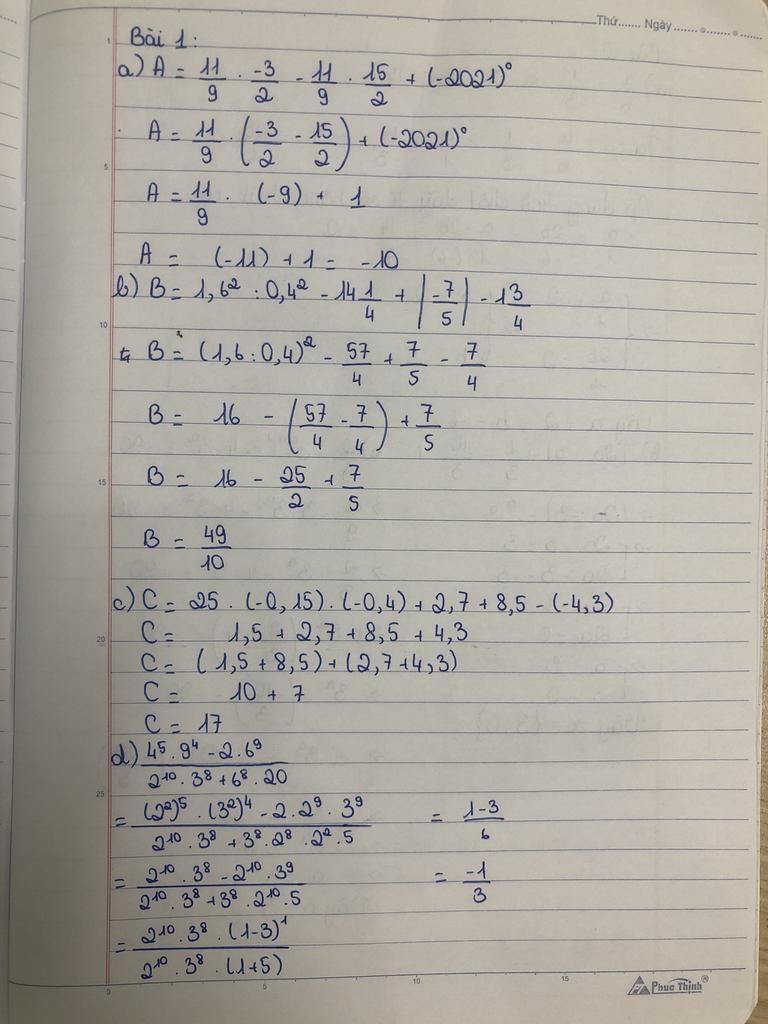 Thứ....... Ngày....... ....... .......
Bài 1:
a) A = 11/9 . -3/2 - 11/9 . 15/2 + (-2021)⁰
A = 11/9 . (-3/2 - 15/2) + (-2021)⁰
A = 11/9 . (-9) + 1
A = (-11) + 1 = -10
b) B = 1,6² : 0,4² - 14 1/4 + |-7/5| - 1 3/4
B = (1,6 : 0,4)² - 57/4 + 7/5 - 7/4
B = 16 - (57/4 - 7/4) + 7/5
B = 16 - 25/2 + 7/5
B = 49/10
c) C = 25 . (-0,15) . (-0,4) + 2,7 + 8,5 - (-4,3)
C = 1,5 + 2,7 + 8,5 + 4,3
C = (1,5 + 8,5) + (2,7 + 4,3)
C = 10 + 7
C = 17
d) (4⁵ . 9⁴ - 2 . 6⁹)/(2¹⁰ . 3⁸ + 6⁸ . 20)
= ((2²)⁵ . (3²)⁴ - 2 . 2⁹ . 3⁹)/(2¹⁰ . 3⁸ + 3⁸ . 2⁸ . 2² . 5)
= (2¹⁰ . 3⁸ - 2¹⁰ . 3⁹)/(2¹⁰ . 3⁸ + 3⁸ . 2¹⁰ . 5)
= (2¹⁰ . 3⁸ . (1-3)¹)/(2¹⁰ . 3⁸ . (1+5))
= (1-3)/6
= -1/3
1
5
10
15
20
25
0 5 10 15
Phuc Thịnh®